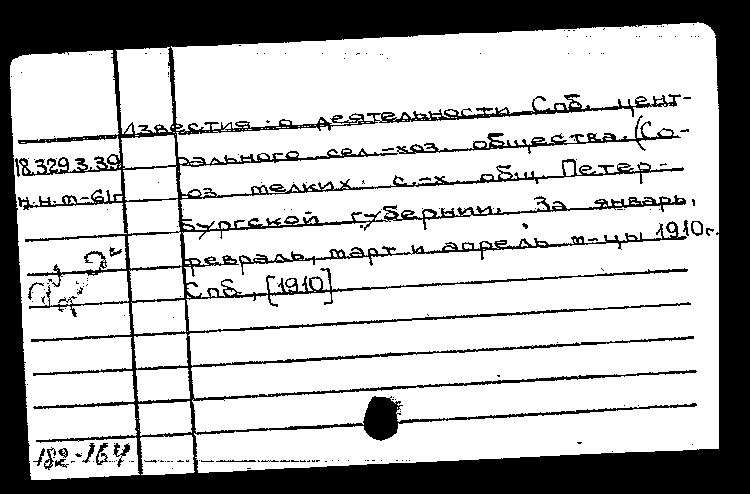 Известия о деятельности Спб. цент-
18.329.3.39 рального сел.-хоз. общества. (Со-
н.н.т-61г юз мелких с.-х. общ. Петер-
бургской губернии. За январь,
февраль, март и апрель м-цы 1910г.
Спб., [1910]
182-164